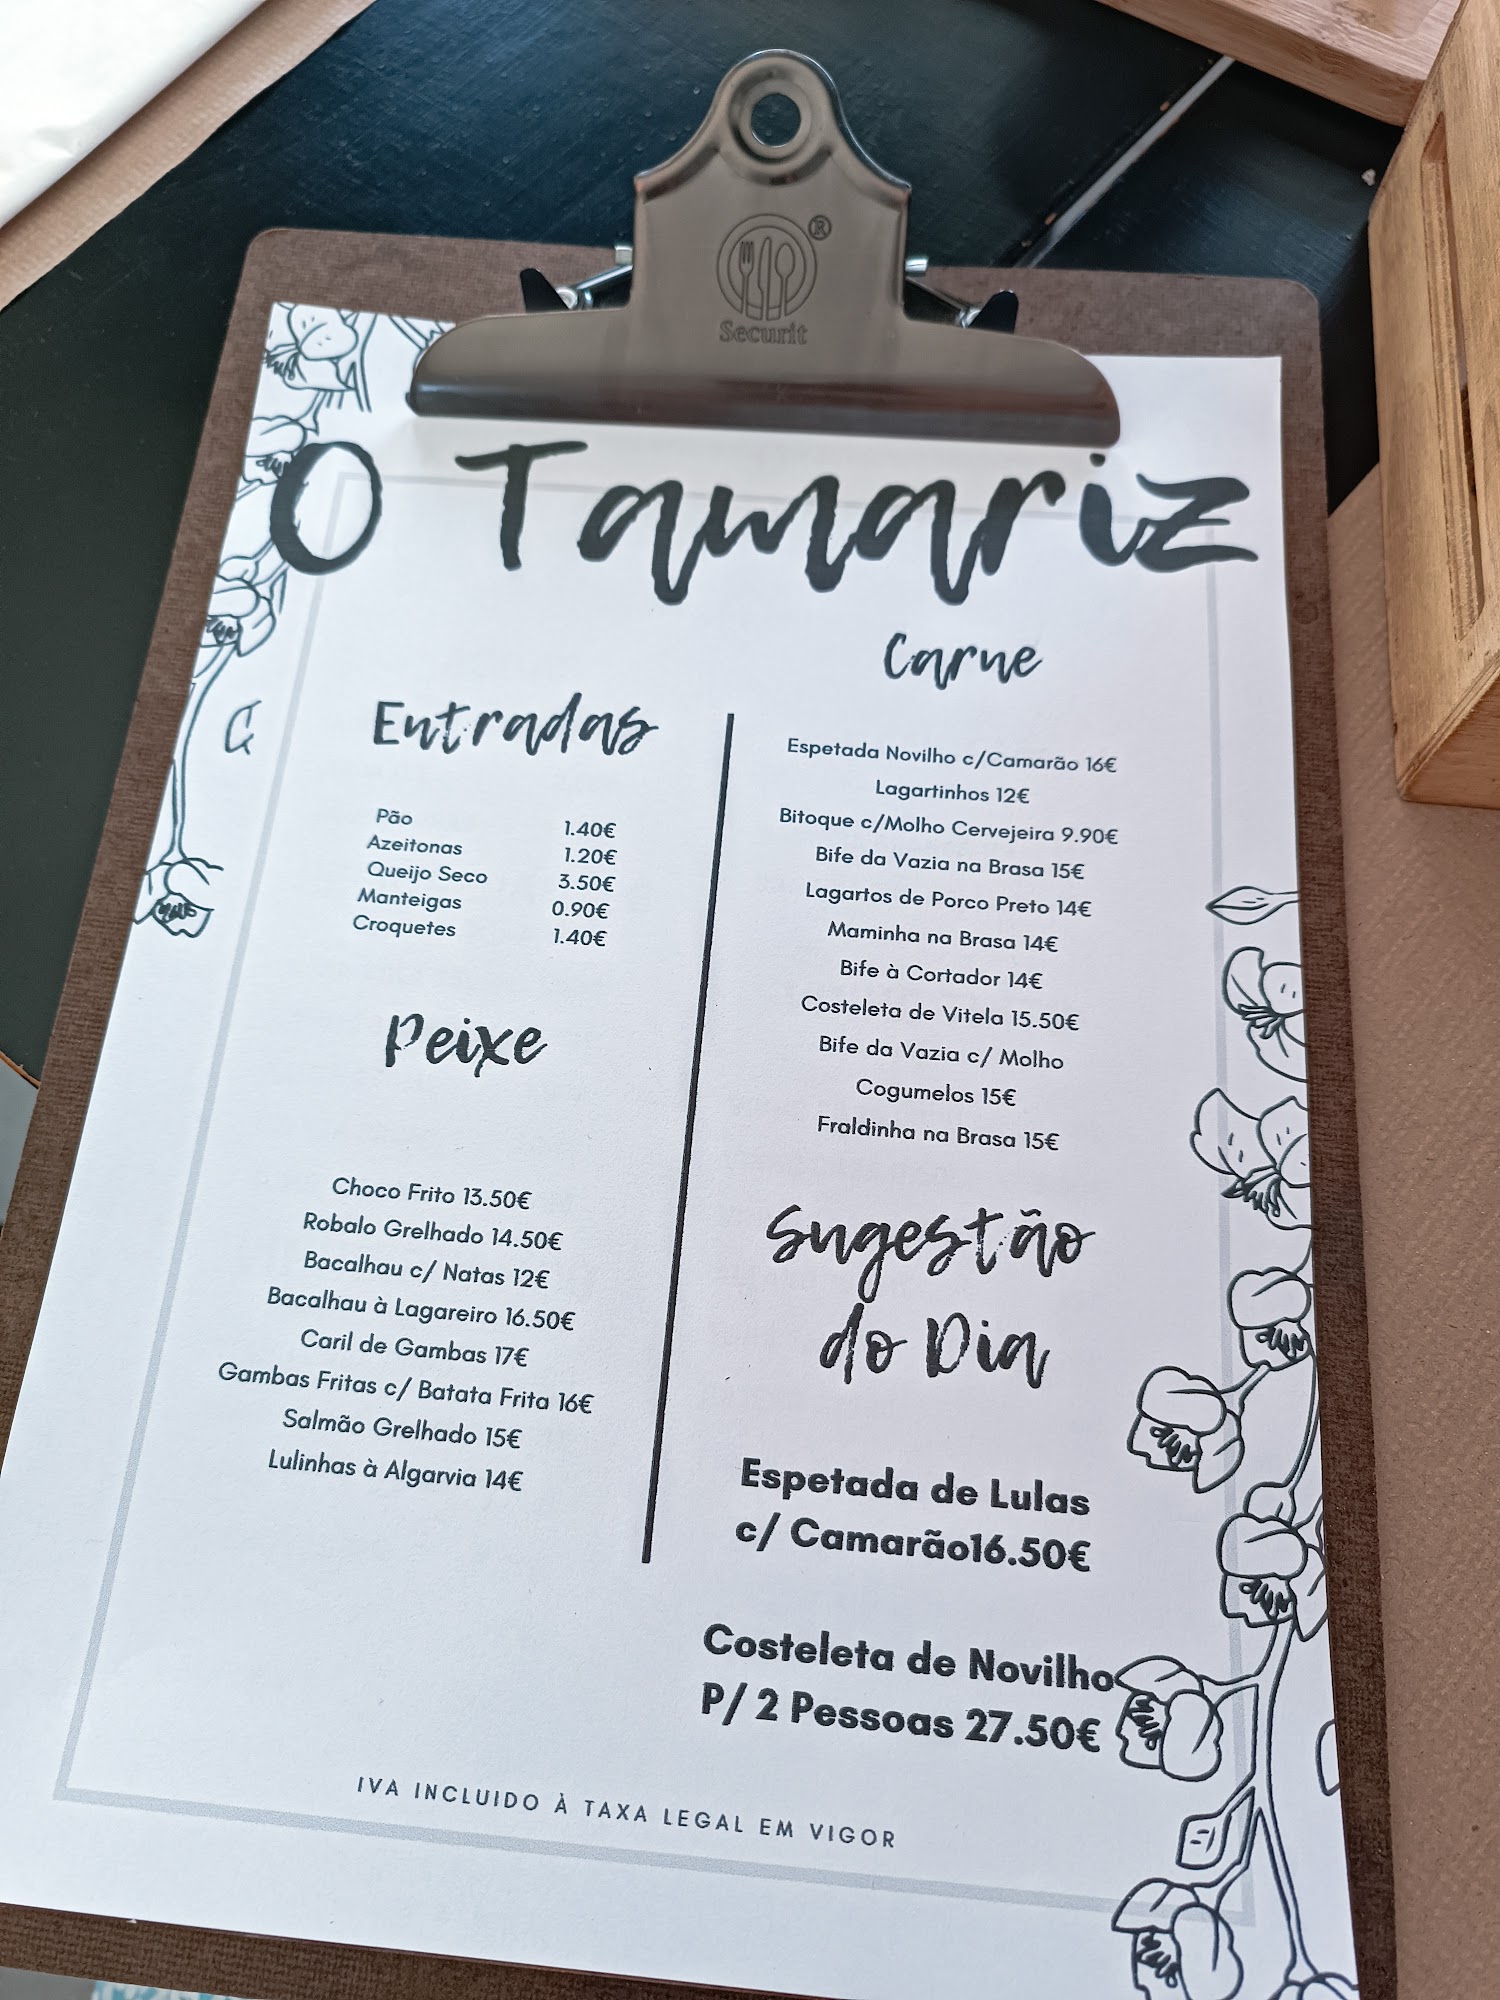 ®
Securit
O Tamariz
Entradas
Pão 1.40€
Azeitonas 1.20€
Queijo Seco 3.50€
Manteigas 0.90€
Croquetes 1.40€
Peixe
Choco Frito 13.50€
Robalo Grelhado 14.50€
Bacalhau c/ Natas 12€
Bacalhau à Lagareiro 16.50€
Caril de Gambas 17€
Gambas Fritas c/ Batata Frita 16€
Salmão Grelhado 15€
Lulinhas à Algarvia 14€
Carne
Espetada Novilho c/Camarão 16€
Lagartinhos 12€
Bitoque c/Molho Cervejeira 9.90€
Bife da Vazia na Brasa 15€
Lagartos de Porco Preto 14€
Maminha na Brasa 14€
Bife à Cortador 14€
Costeleta de Vitela 15.50€
Bife da Vazia c/ Molho
Cogumelos 15€
Fraldinha na Brasa 15€
Sugestão
do Dia
Espetada de Lulas
c/ Camarão16.50€
Costeleta de Novilho
P/ 2 Pessoas 27.50€
IVA INCLUIDO À TAXA LEGAL EM VIGOR